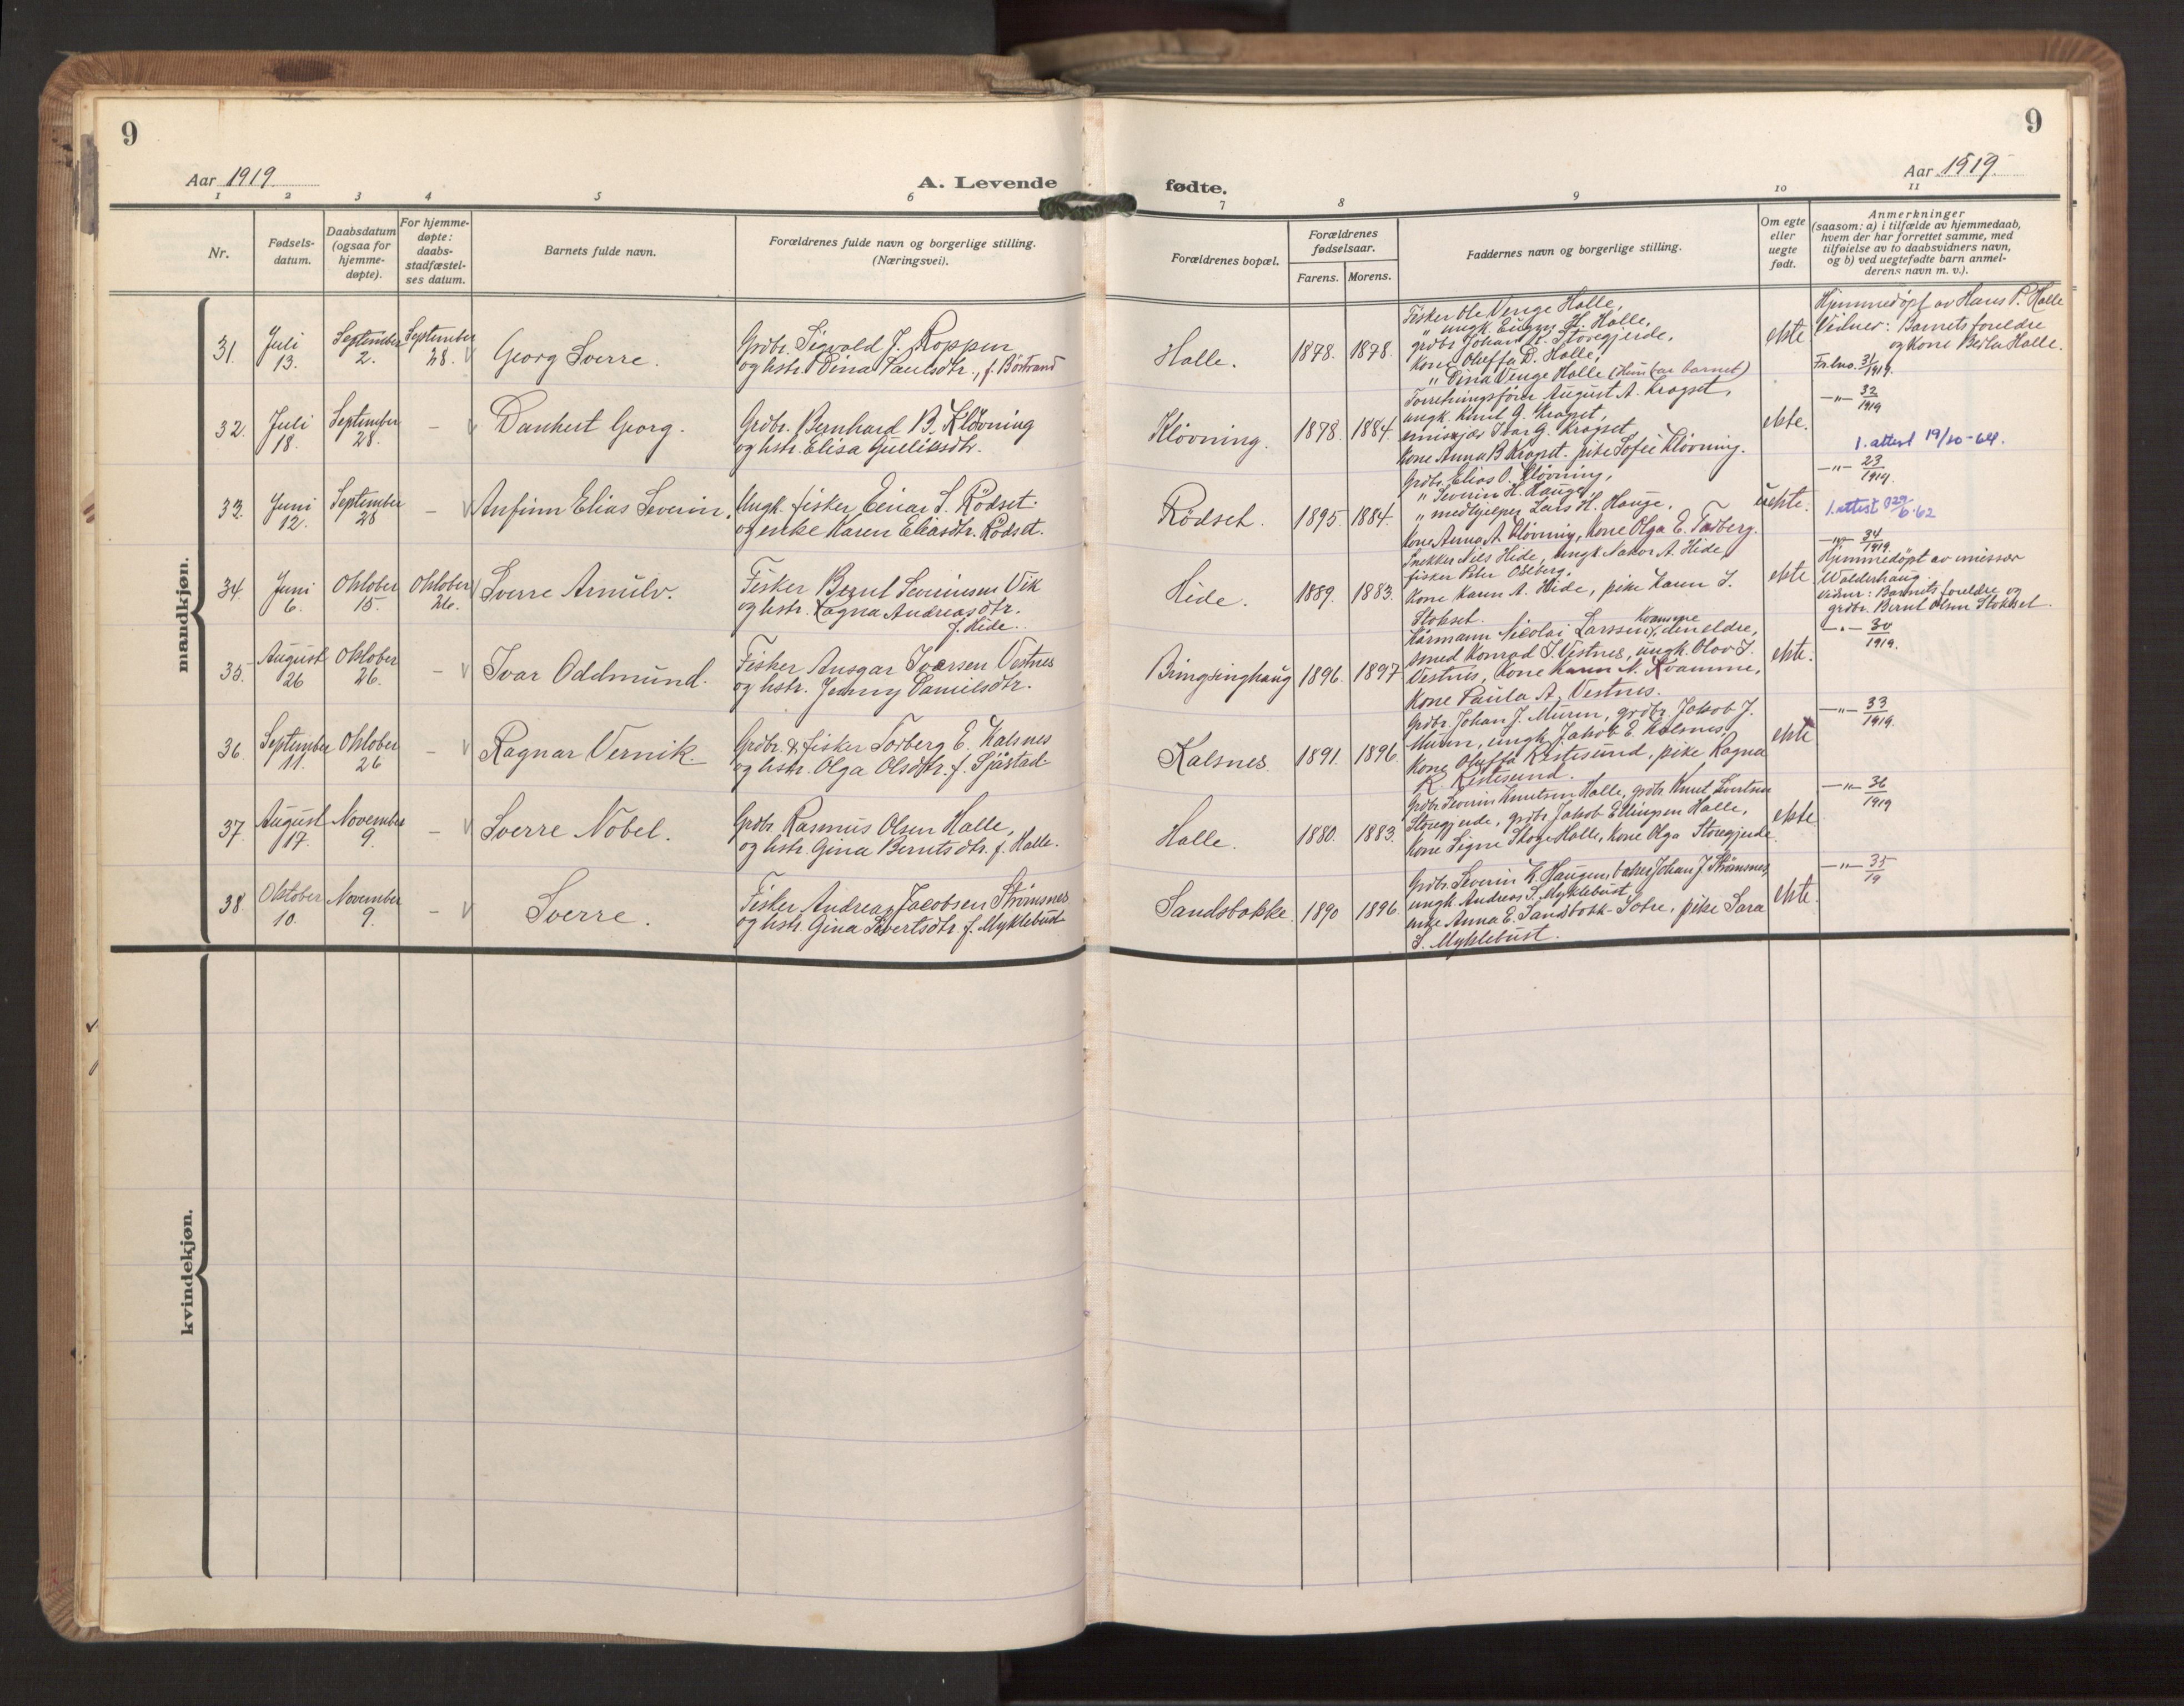 9
9
Aar 1919.
A. Levende fødte.
Aar 1919.
1 2 3 4 5 6 7 8 9 10 11
Nr.
Fødsels-
datum.
Daabsdatum
(ogsaa for
hjemme-
døpte).
For hjemme-
døpte:
daabs-
stadfæstel-
ses datum.
Barnets fulde navn.
Forældrenes fulde navn og borgerlige stilling.
(Næringsvei).
Forældrenes bopæl.
Forældrenes
fødselsaar.
Farens. Morens.
Faddernes navn og borgerlige stilling.
Om egte
eller
uegte
født.
Anmerkninger
(saasom: a) i tilfælde av hjemmedaab,
hvem der har forrettet samme, med
tilføielse av to daabsvidners navn,
og b) ved uegtefødte barn anmel-
derens navn m. v.).
mandkjøn.
31. Juli 13. September 2. September 28. Georg Sverre.
Grdbr. Sigvald J. Roppen
og hstr. Dina Paulsdtr., f. Börstrand
Halle. 1878. 1878.
Fisker Ole Venge Halle,
" ungk. H. Halle,
grdbr. Johan K. Storegjerde,
kone Oluffa D. Halle,
" Dina Venge Halle (Hun bar barnet)
ekte
Hjemmedöpt av Hans P. Halle
Vidner: Barnets foreldre
og kone Berta Halle.
31/1919.
32. Juli 18. September 28. – Dankert Georg.
Grdbr. Bernhard B. Klövning
og hstr. Elisa Gulliksdtr.
Klövning. 1878. 1884.
Forretningsförer August A. Kragset,
ungk. Knut G. Kragset,
Ivar G. Kragset
kone Anna B. Kragset. pike Sofie Klövning.
ekte.
–"– 32/1919
1. attest 19/10-64.
33. Juni 12. September 28 – Anfinn Elias Severin.
Ungk. fisker Einar S. Rödset
og enke Karen Eliasdtr. Rödset.
Rödset. 1895. 1884.
Grdbr. Elias O. Klövning,
" Severin H. Hauge,
" medhjelper Lars H. Hauge,
kone Anna A. Klövning, kone Olga E. Tarberg.
uekte.
–"– 23/1919.
1. attest 29/6-62
34. Juni 6. Oktober 15. Oktober 26. Sverre Arnulv.
Fisker Bernt Severinsen Vik
og hstr. Ragna Andreasdtr.
f. Hide.
Hide. 1889. 1883.
Snekker Nils Hide, ungk. A. Hide,
fisker Peter
kone Karen A. Hide, pike Karen S.
Stokset.
ekte
–"– 34/1919.
Hjemmedöpt av
Walderhaug.
Vidner: Barnets foreldre og
grdbr. Bernt Olsen Stokset.
35. August 26 Oktober 26. – Ivar Oddmund.
Fisker Ansgar Iversen Vestnes
og hstr. Jenny Danielsdtr.
Bringsinghaug 1896. 1897
Kårmann Nicolai Larssen Kvamme, den eldre,
smed Konrad I. Vestnes, ungk. Olov I.
Vestnes, kone Karen N. Kvamme,
kone Paula A. Vestnes.
ekte.
–"– 30/1919.
36. September 11. Oktober 26 – Ragnar Vernik.
Grdbr. & fisker Torberg E. Kalsnes
og hstr. Olga Olsdtr. f. Sjåstad.
Kalsnes. 1891. 1896
Grdbr. Johan J. Muren, grdbr. Jakob J.
Muren, ungk. Jakob E. Kalsnes,
kone Oluffa Ristesund, pike Ragna
R. Ristesund.
ekte
–"– 33/1919.
37. August 17. November 9. – Sverre Nobel.
Grdbr. Rasmus Olsen Halle,
og hstr. Gina Berntsdtr. f. Halle.
Halle. 1880. 1883.
Grdbr. Severin Knutsen Halle, grdbr. Knut Sivertsen
Storegjerde, grdbr. Jakob Ellingsen Halle,
kone Signe Skoge Halle, kone Olga Storegjerde
ekte
–"– 36/1919
38. Oktober 10. November 9. – Sverre.
Fisker Andreas Jacobsen Strömsnes
og hstr. Gina Sivertsdtr. f. Myklebust
Sandsbakke. 1890 1896.
Grdbr. Severin Haugen, Johan J. Strömsnes,
ungk. Andreas S. Myklebust,
enke Anna E. Sandsbakk-Sotre, pike Sara
S. Myklebust.
ekte.
–"– 35/19
kvindekjøn.